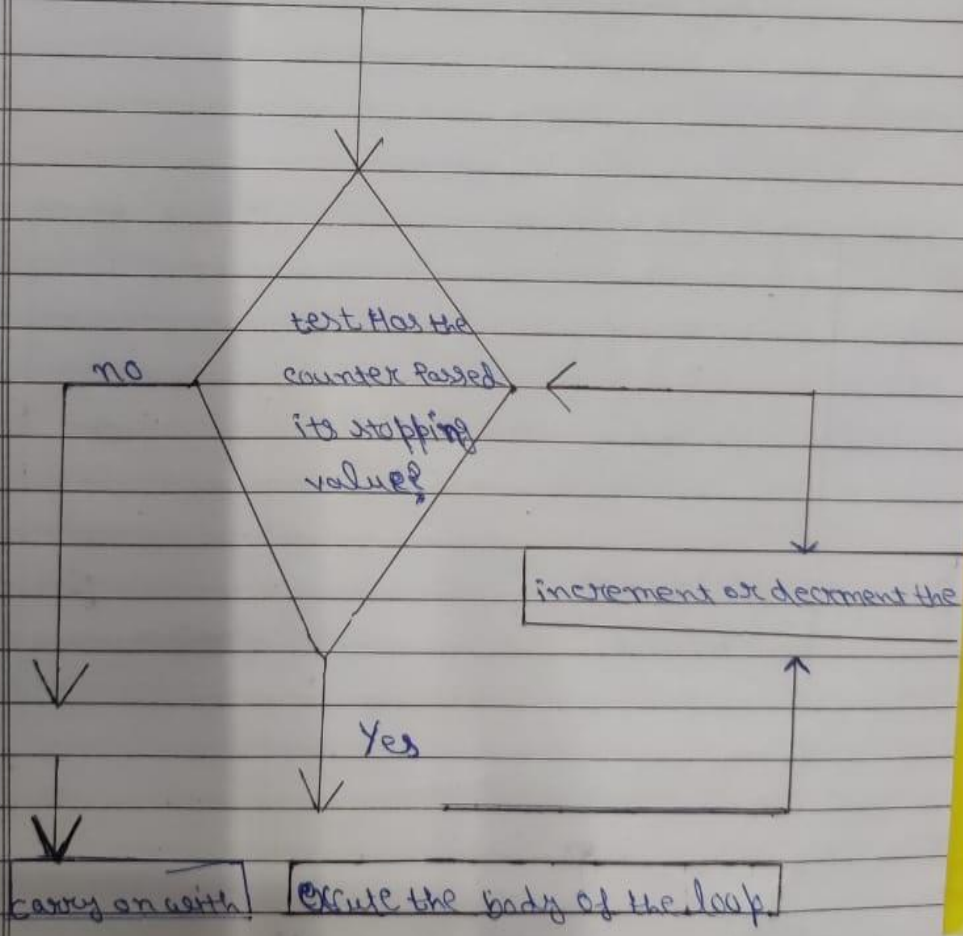 test Has the
no
counter Passed
its stopping
value?
increment or decrment the
Yes
carry on with
excute the body of the loop.